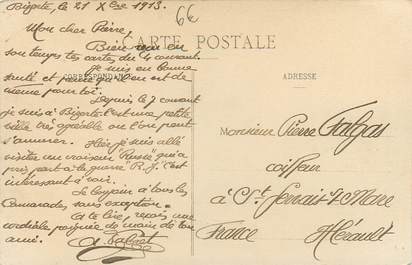 Bizerte, le 21 Xbre 1913.
6€
CARTE POSTALE
CORRESPONDANCE
ADRESSE
Mon cher Pierre,
Bien reçu en
son temps tes cartes du 4 courant.
Je suis en bonne
santé et pense qu'il en est de
même pour toi.
Depuis le 7 courant
je suis à Bizerte. C'est une petite
ville très agréable ou l'on peut
s'amuser. Hier je suis allé
visiter un croiseur "Russe" qui a
pris part à la guerre R. J. C'est
intéressant à voir.
Le bonjour à tous les
Camarades, sans exception.
A te lire, reçois une
cordiale poignée de main de ton
ami.
Monsieur Pierre Galgas
coiffeur
à St Gervais s/ Mare
France Hérault